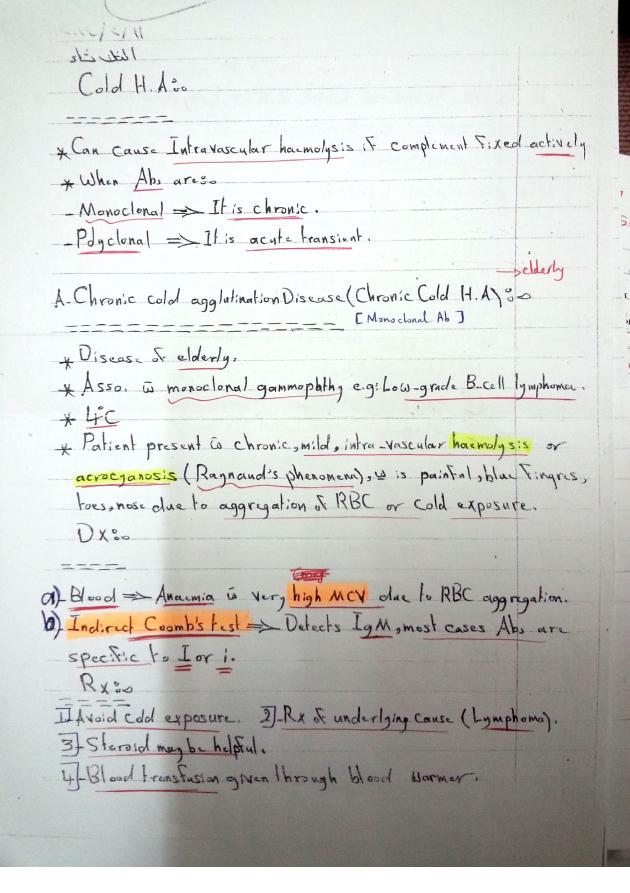 Cold H.A:
* Can cause Intravascular haemolysis if complement fixed actively
* When Abs are:
- Monoclonal ⇒ It is chronic.
- Polyclonal ⇒ It is acute transient.
→ elderly
A- Chronic cold agglutination Disease (Chronic Cold H.A):
[Monoclonal Ab]
* Disease of elderly.
* Asso. w̄ monoclonal gammophthy e.g: Low-grade B-cell lymphoma.
* 4°C
* Patient present w̄ chronic, mild, intra-vascular haemolysis or
acrocyanosis (Raynaud's phenomena), w is painful, blue fingres,
toes, nose due to aggregation of RBC or cold exposure.
Dx:
a)- Blood ⇒ Anaemia w̄ very high MCV due to RBC aggregation.
b)- Indirect Coomb's test ⇒ Detects IgM, most cases Abs are
specific to I or i.
Rx:
1]- Avoid cold exposure. 2]- Rx of underlying cause (Lymphoma).
3]- Steroid may be helpful.
4]- Blood transfusion given through blood warmer.